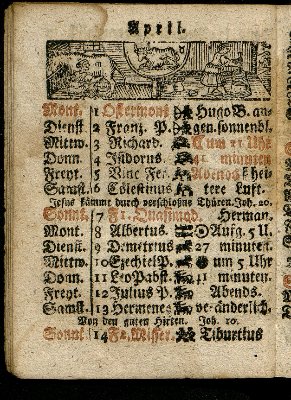 April.
Mont. 1 Ostermont Hugo B. an-
Dienst. 2 Franz. P. gen. sonnenbl.
Mittw. 3 Richard. C um 11 Uhr
Donn. 4 Isidorus. 41 minuten
Freyt. 5 Vinc Fer. Abends hei-
Samst. 6 Cölestinus tere Luft.
Jesus kömmt durch verschloßne Thüren. Joh. 20.
Sonnt. 7 F1. Quasimod. Herman.
Mont. 8 Albertus. Aufg. 5 U.
Dienst. 9 Demetrus 27 minuten.
Mittw. 10 Ezechiel P. um 5 Uhr
Donn. 11 Leo Pabst. 11 minuten.
Freyt. 12 Julius P. Abends.
Samst. 13 Hermene: veränderlich.
Von den guten Hirten. Joh. 10.
Sonnt 14 F2. Miser. Tiburtius